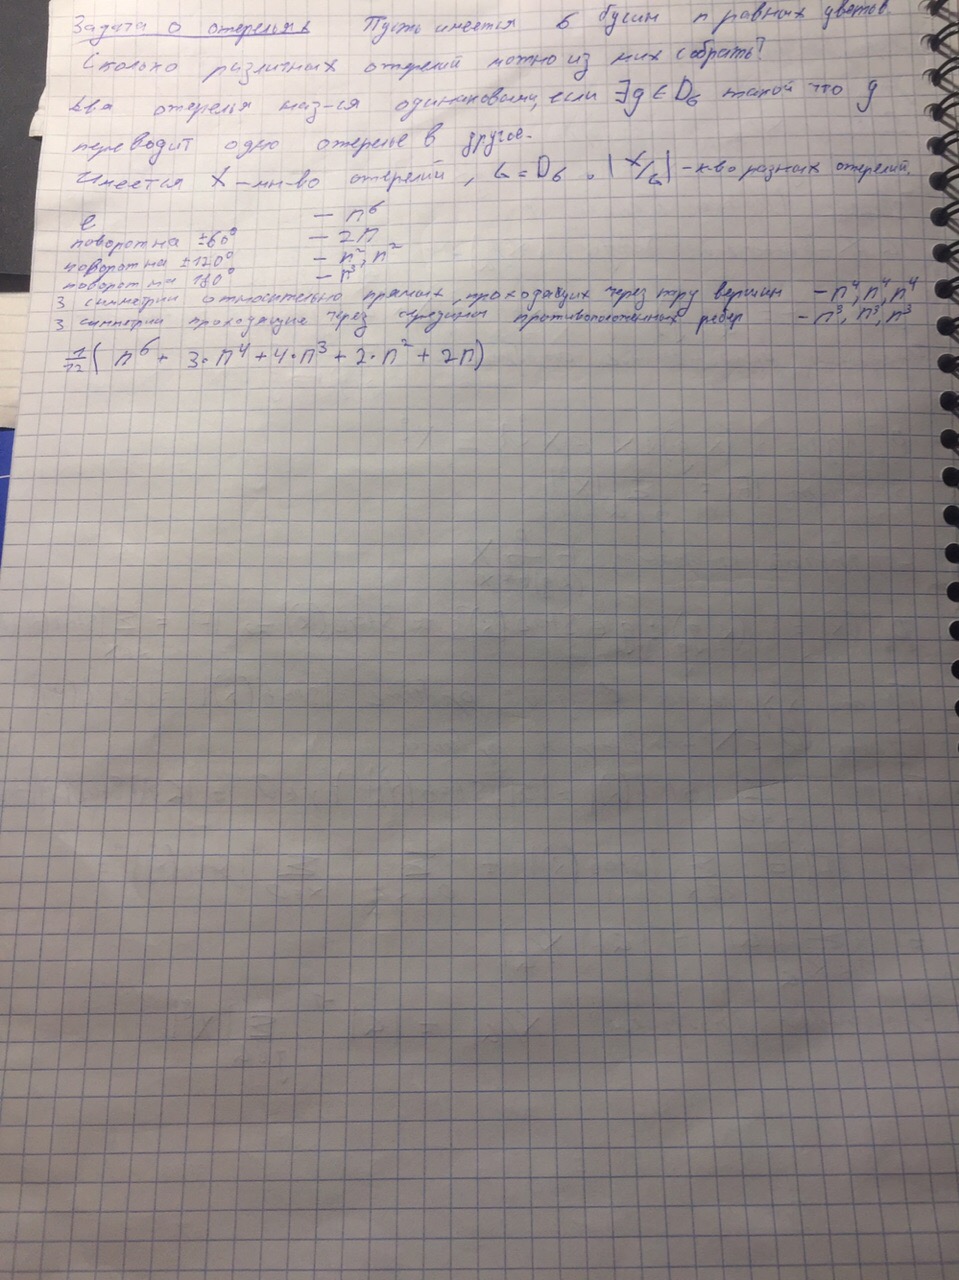 Задача о ожерельях Пусть имеется 6 бусин n разных цветов.
Сколько различных ожерелий можно из них собрать?
Два ожерелья наз-ся одинаковыми, если ∃g ∈ D₆ такой что g
переводит одно ожерелье в другое.
Имеется X - мн-во ожерелий, G = D₆. |X/G| - к-во разных ожерелий.
e — n⁶
поворот на ±60° — 2n
поворот на ±120° — n², n²
поворот на 180° — n³
3 симметрии относительно прямых, проходящих через пару вершин — n⁴, n⁴, n⁴
3 симметрии проходящие через середины противоположенных ребер — n³, n³, n³
1/12 ( n⁶ + 3·n⁴ + 4·n³ + 2·n² + 2n)